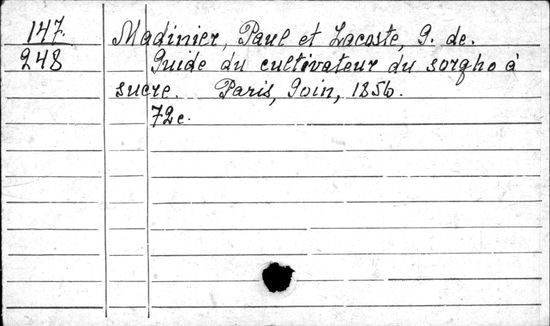 147. Madinier, Paul et Lacoste, G. de.
248 Guide du cultivateur du sorgho à
sucre. Paris, Goin, 1856.
72c.